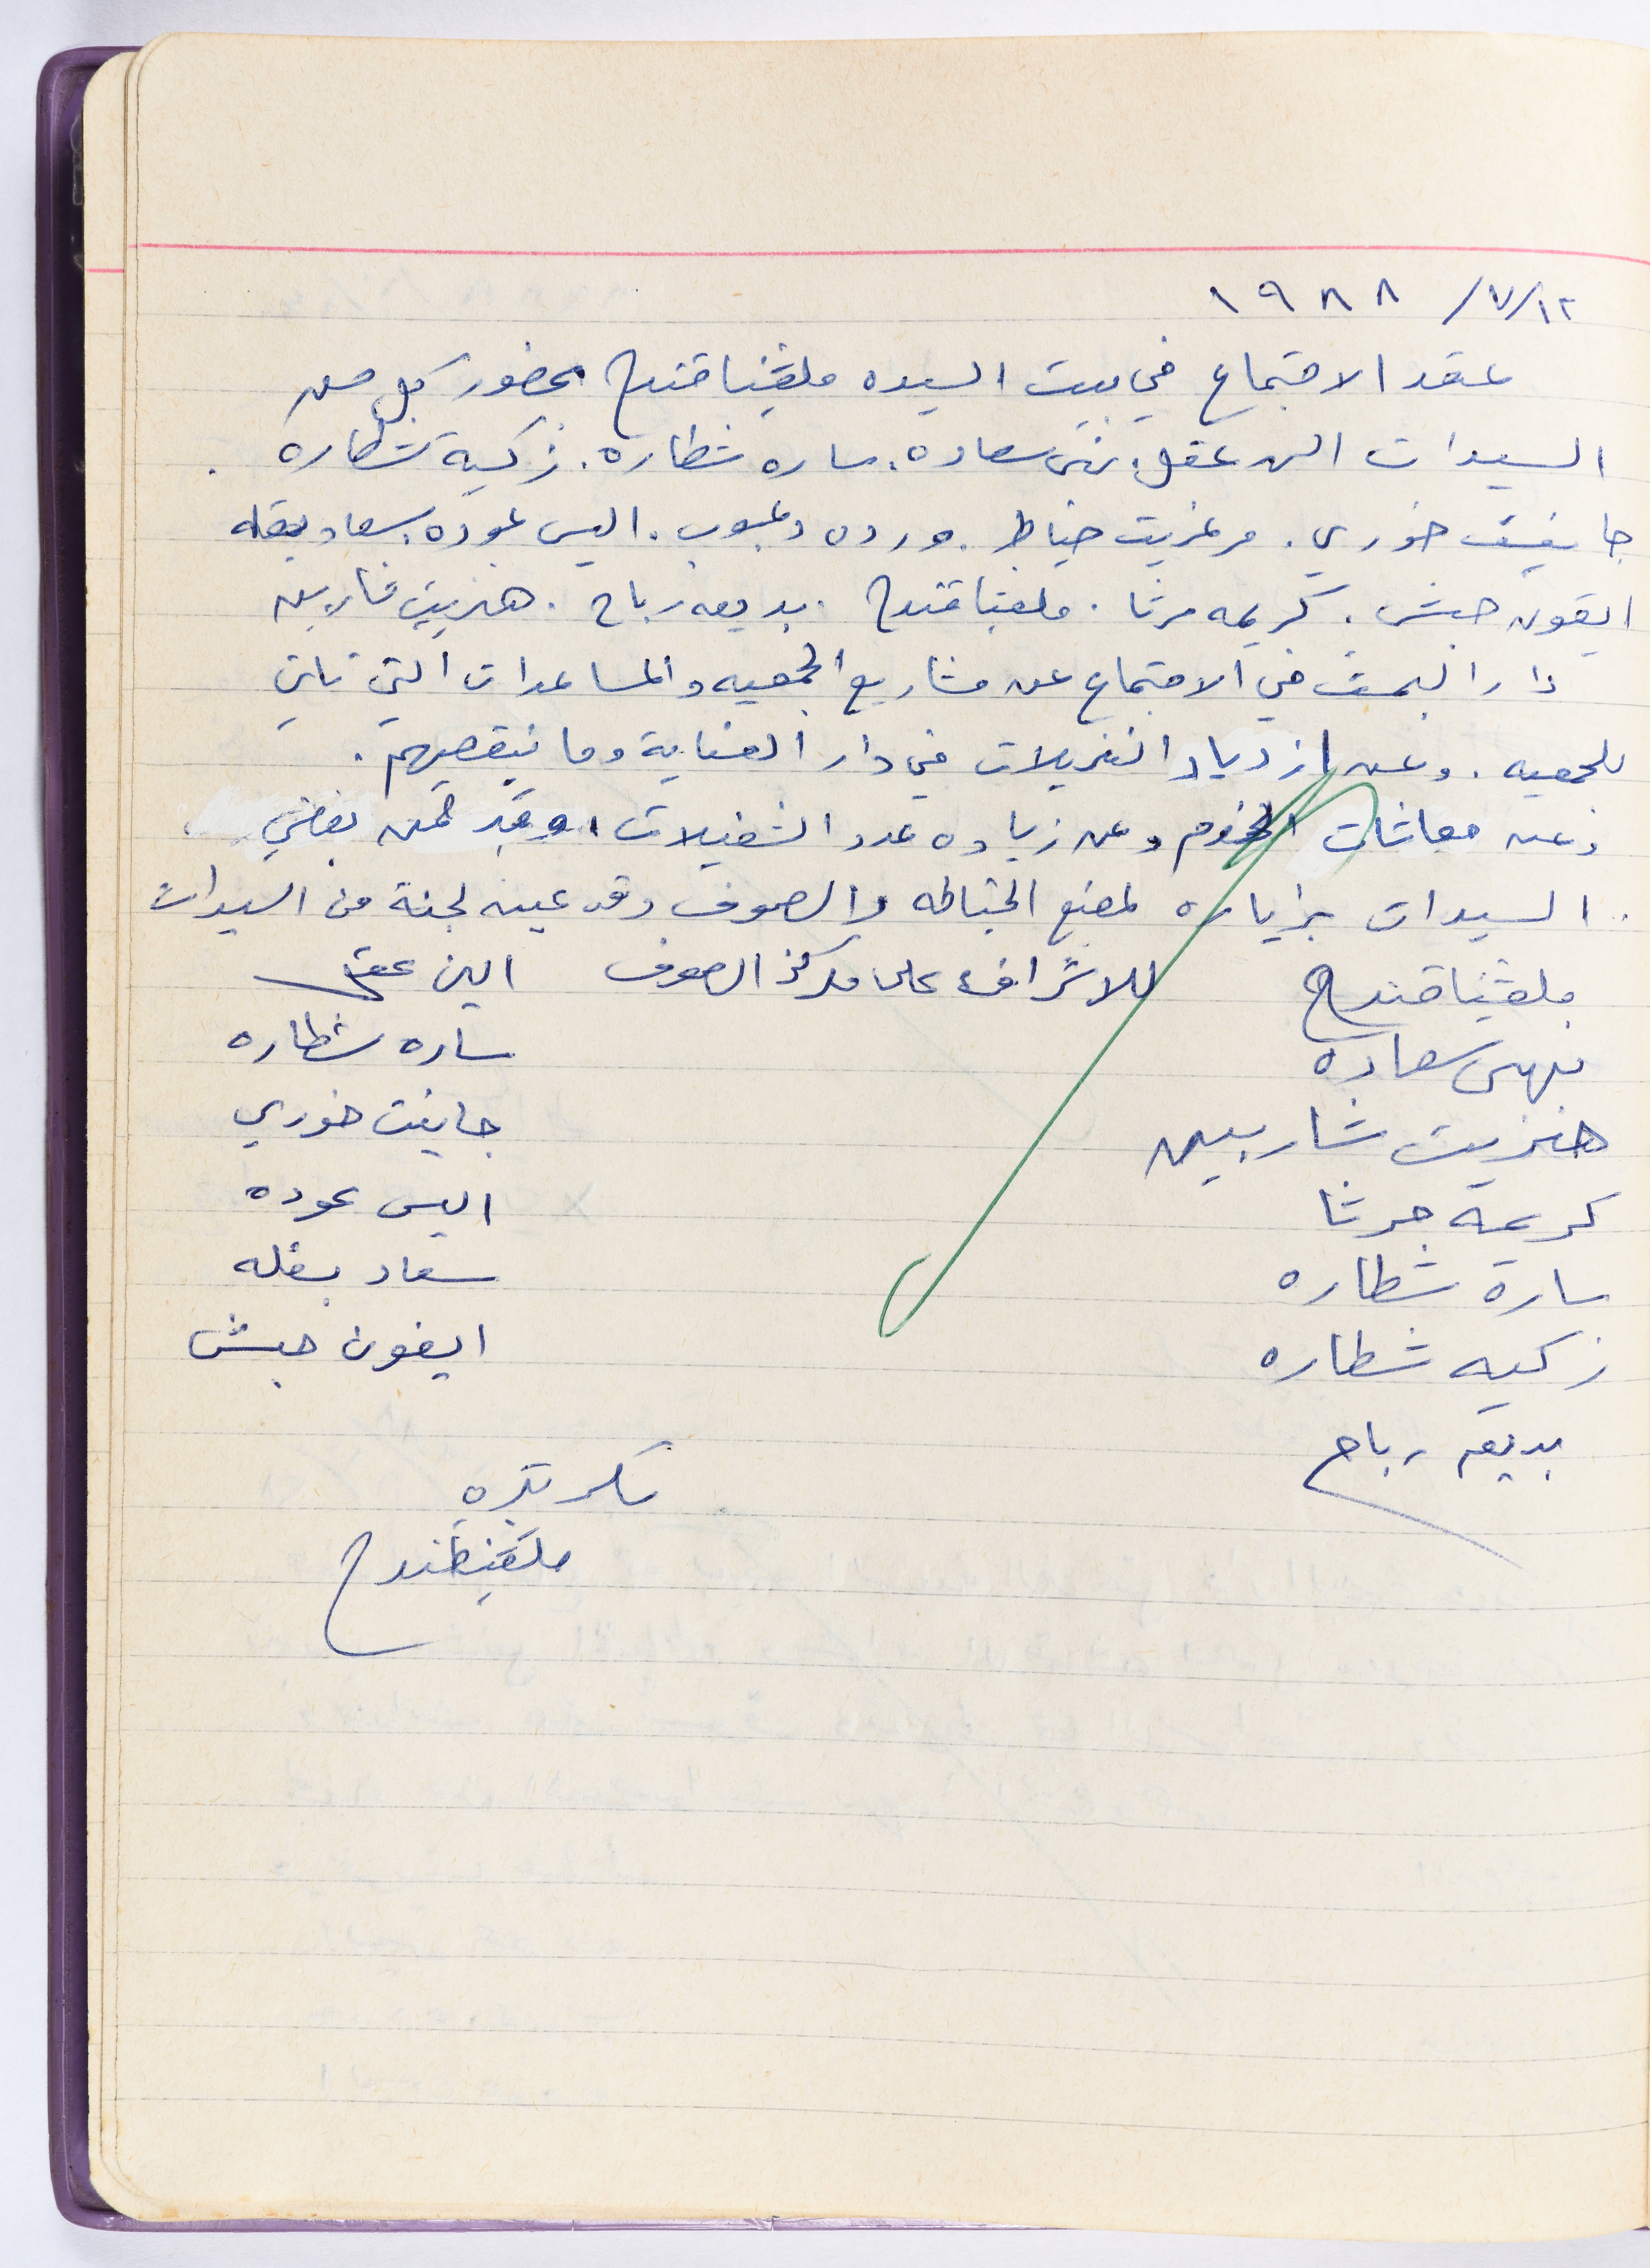 ١٩٨٨ /٧/١٢
عقد الاجتماع في بيت السيده ملفينا قندح بحضور كل من
السيدات الن عقل. نهى ساعده. ساره شطاره. زكية شطاره.
جانيت خوري. مرغريت خياط. ورده دعبوب. اليس عوده. سعاد بقله
ايفون حبش. كريمه مرثا. ملفينا قندح. بديعه رباح. هنريت شاربين
دار البحث في الاجتماع عن مشاريع الجمعيه والمساعدات التي تاتي
للجمعيه. وعن ازدياد النزيلات في دار العناية وما ينقصهم.
وعن معاشات الخدم وعن زياده عدد الشغيلات وقد قمن بعض
السيدات بزياره لمصنع الخياطه والصوف وقد عين لجنة من السيدات
للاشراف على مركز الصوف
ملفينا قندح
نهى سعاده
هنريت شاربين
كريمة مرثا
سارة شطاره
زكيه شطاره
بديعه رباح
الين عقل
ساره شطاره
جانيت خوري
اليس عوده
سعاد بقله
ايفون حبش
سكرتيره
ملفينا قندح